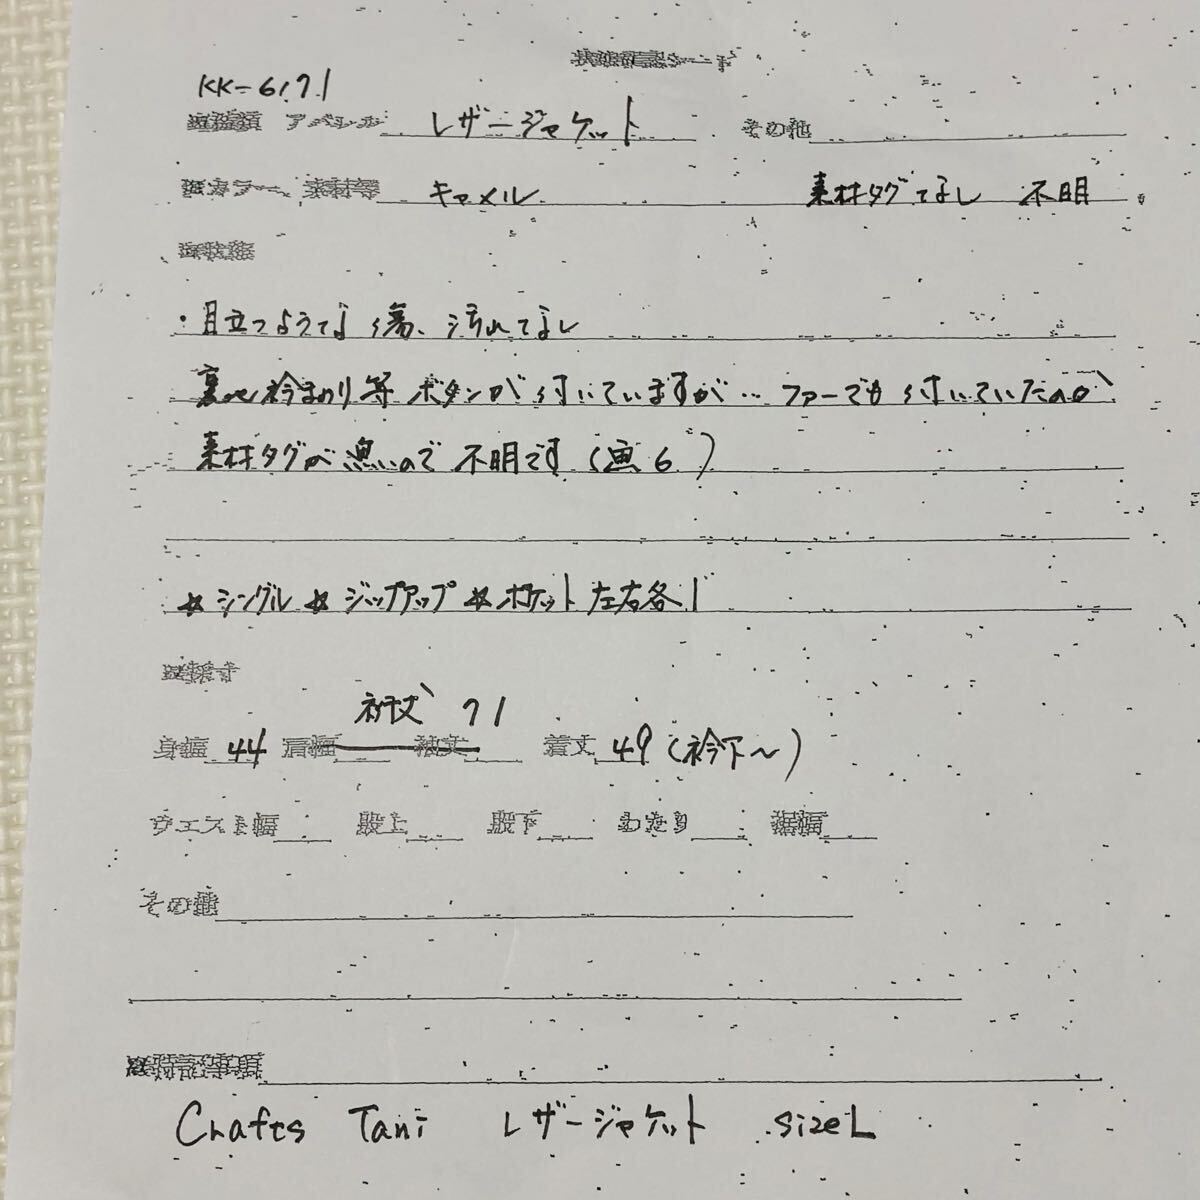 状態確認シート
KK-6171
アパレル レザージャケット その他
カラー、素材等 キャメル 素材タグなし 不明
・目立つような傷、汚れてなし
裏地衿まわり等 ボタンが付いていますが… ファーでも付いていたのか
素材タグが無いので不明です(画6)
☆シングル ☆ジップアップ ☆ポケット左右各1
採寸
裄丈 71
身幅 44 肩幅 袖丈 着丈 49(衿下〜)
ウエスト幅 股上 股下 わたり 裾幅
その他
特記事項
Crafts Tani レザージャケット sizeL